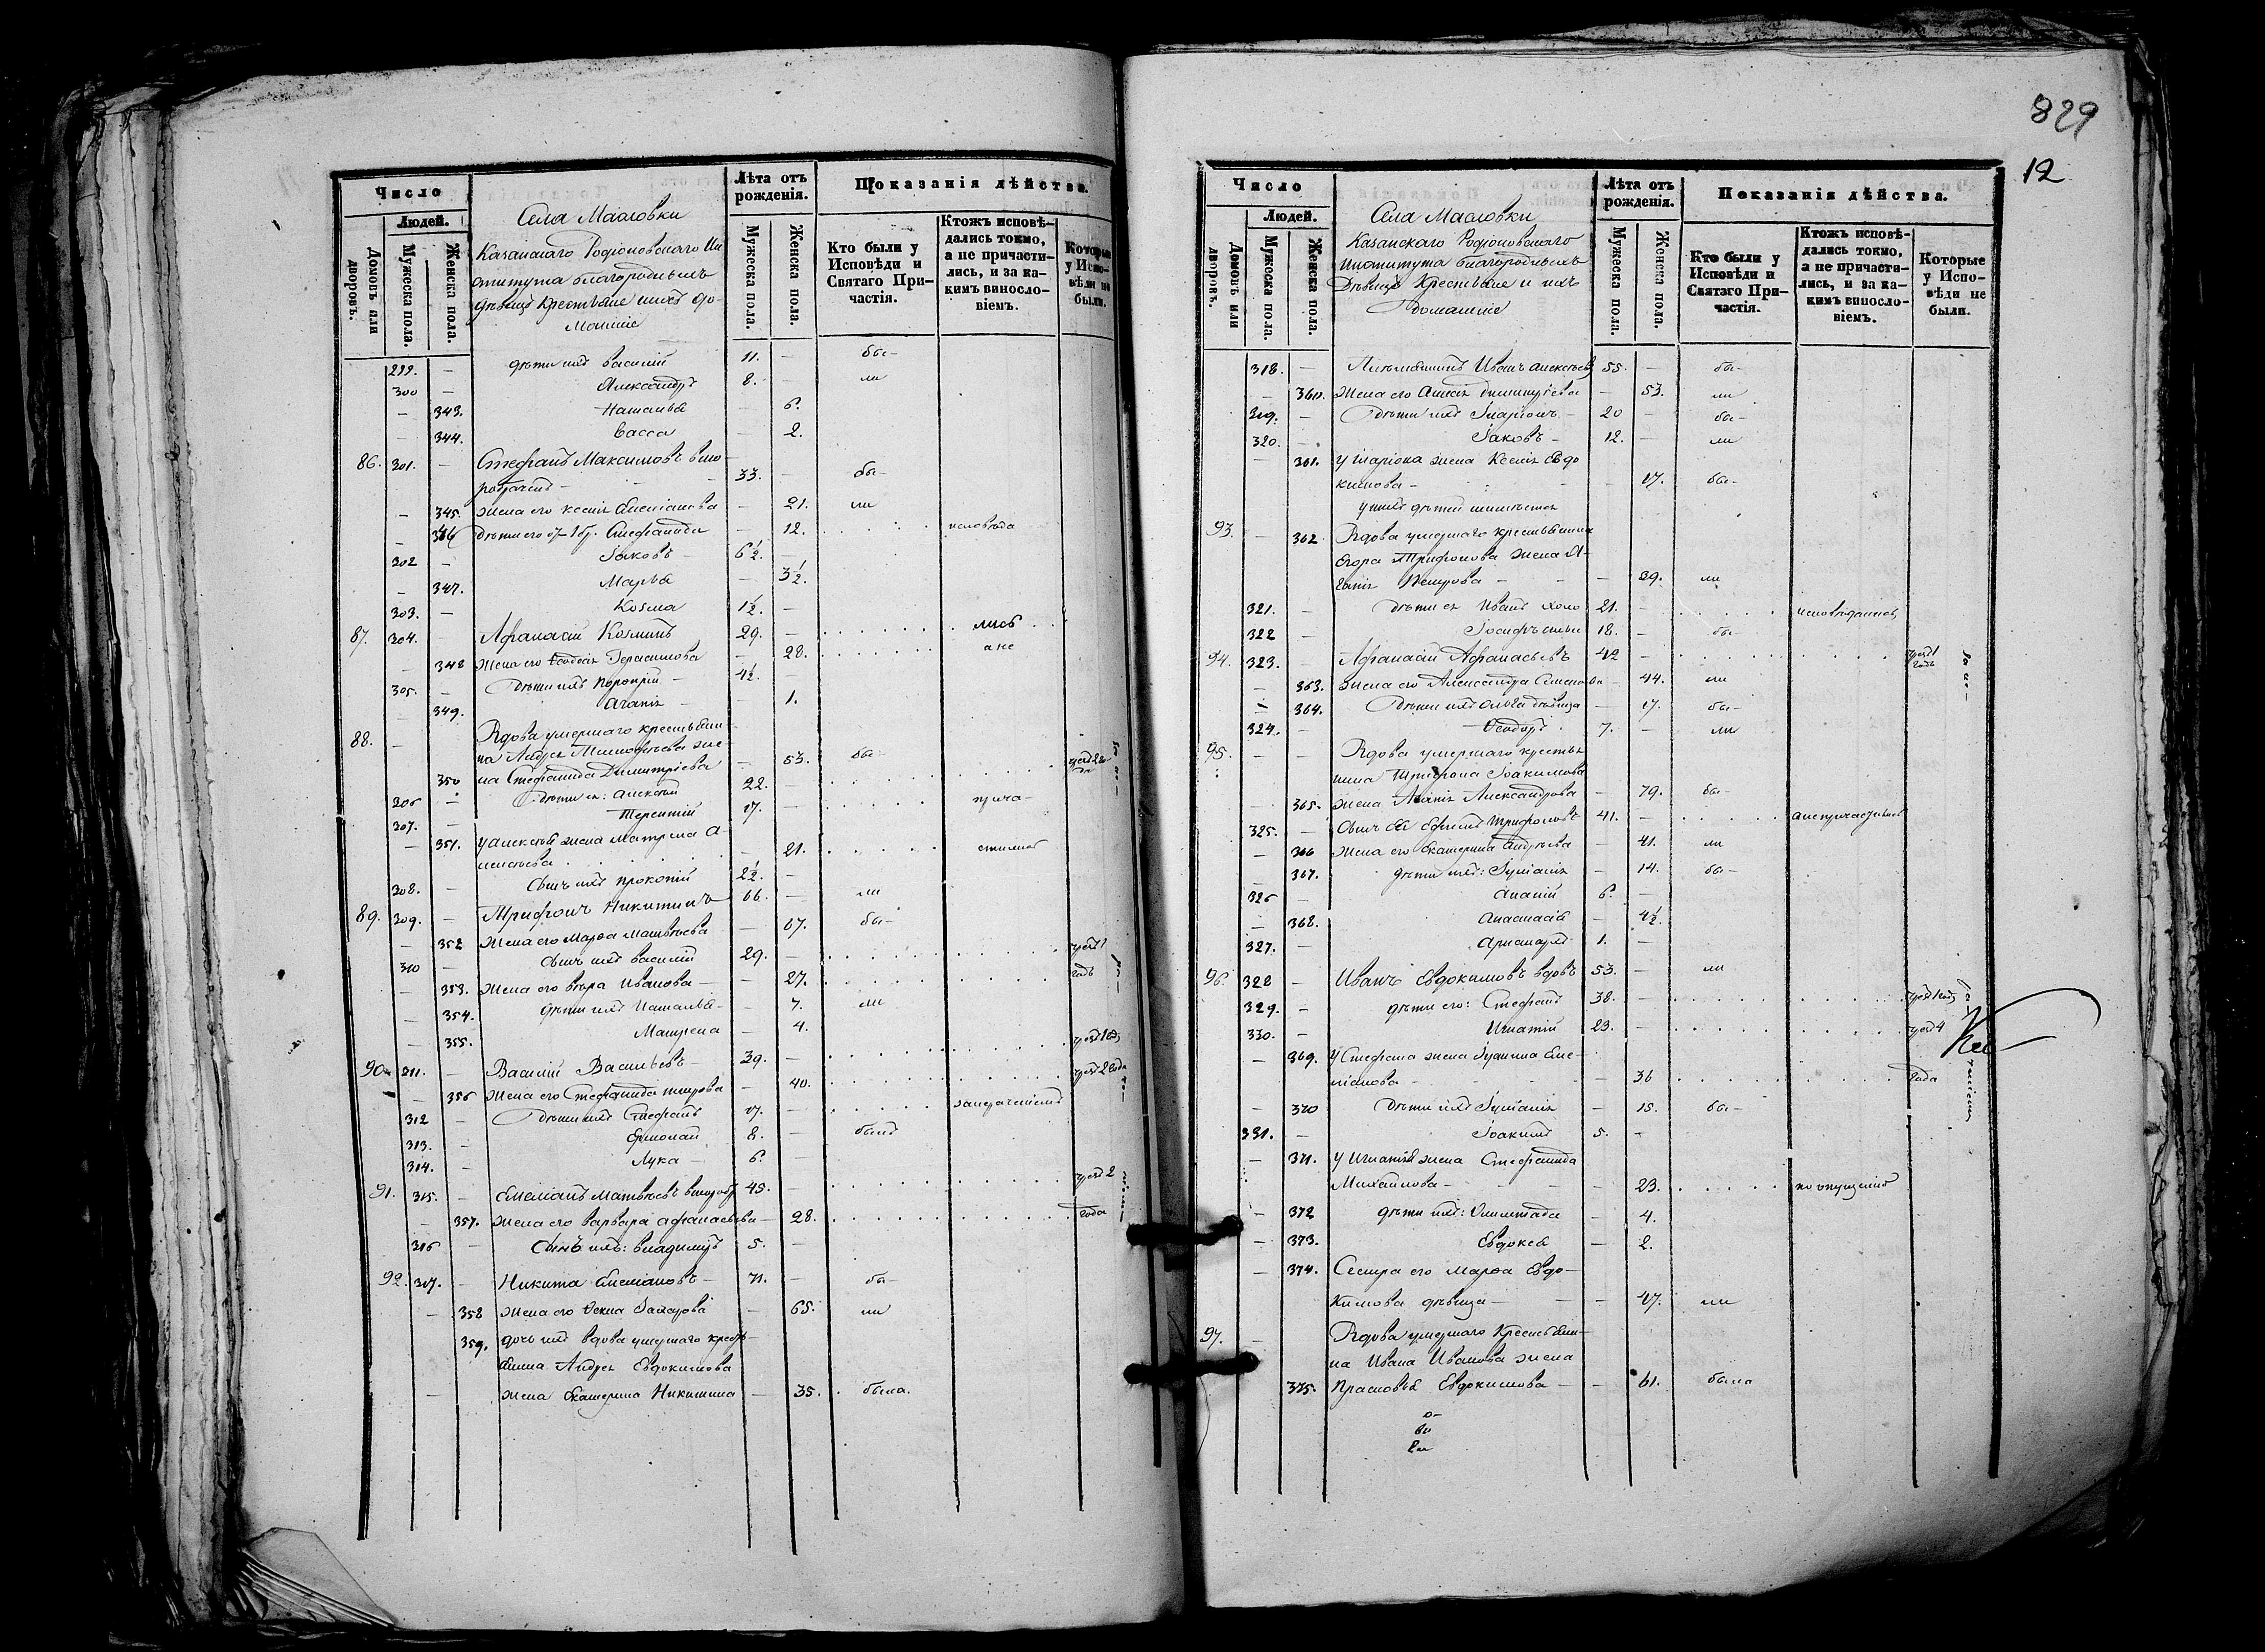 829
12
Число
Людей.
Домовъ или дворовъ.
Мужеска пола.
Женска пола.
Села Масловки
Казанскаго Родіоновскаго Ин
ститута благородныхъ
дѣвицъ Крестьяне и ихъ до
машніе
Лѣта отъ рожденія.
Мужеска пола.
Женска пола.
Показанія дѣйства.
Кто были у Исповѣди и Святаго Причастія.
Ктожъ исповѣдались токмо, а не причастились, и за какимъ винословіемъ.
Которые у Исповѣди не были.
299. — дѣти ихъ Василій 11. — бы-
300 — Александръ 8. — ли
— 343. Наталья — 6.
— 344. Васса — 2.
86. 301. — Стефанъ Максимовъ вто
робрачный — 33. — бы-
— 345. жена его Ксенія Емеліанова — 21. ли
— 346 дѣти его отъ 1 бр. Стефанида — 12. исповѣда
302 — Іаковъ — 6½. —
— 347. Марья — 3½.
303. — Козма 1½. —
87. 304. — Афанасій Козминъ 29. — лись
— 348 жена его Феодосія Герасимова — 28. а не
305. — дѣти ихъ Порфирій — 4½. —
— 349. Агапія — 1.
88. — Вдова умершаго крестьяни-
на Андрея Тимофѣева же-
350 на Стефанида Димитріева — 53. бы-
306 — дѣти ея: Алексѣй 22. — чрезъ 2 го
да
307. — Терентій 17. — прича-
— 351. у Алексѣя жена Матрена А-
лексѣева — 21. стились
308. — сынъ ихъ Прокопій 2½. —
89. 309. — Трифонъ Никитинъ 66. — ли
— 352 жена его Марфа Матвѣева — 67. бы-
310 — сынъ ихъ Василій 29. — чрезъ 1
— 353. жена его Вѣра Иванова — 27. годъ
— 354. дѣти ихъ Наталья — 7. ли
— 355. Матрена — 4.
90. 311. — Василій Васильевъ — 39. — чрезъ 1 годъ
— 356 жена его Стефанида Петрова — 40. чрезъ 2 года
312 — дѣти ихъ Стефанъ 17. —
313. — Ермолай 8. — были
314. — Лука — 6. —
91. 315. — Емеліанъ Матвѣевъ второбр 45. — чрезъ 2
— 357. жена его Варвара Афанасьева — 28. года
316 — сынъ ихъ: Владиміръ 5. —
92. 317. — Никита Емеліановъ — 71. — бы-
— 358 жена его Фекла Захарова — 65. ли
359. дочь ихъ вдова умершаго кресть-
янина Андрея Евдокимова
— жена Екатерина Никитина — 35. была.
Число
Людей.
Домовъ или дворовъ.
Мужеска пола.
Женска пола.
Села Масловки
Казанскаго Родіоновскаго
Института благородныхъ
Дѣвицъ Крестьяне и ихъ
домашніе
Лѣта отъ рожденія.
Мужеска пола.
Женска пола.
Показанія дѣйства.
Кто были у Исповѣди и Святаго Причастія.
Ктожъ исповѣдались токмо, а не причастились, и за какимъ винословіемъ.
Которые у Исповѣди не были.
318. — Иванъ Алексѣевъ 55. — бы-
— 360. жена его Димитріева — 53. ли
319. — дѣти ихъ Иларіонъ — 20 — бы-
320. — Іаковъ — 12. — ли
— 361. у Иларіона жена Ксенія Евдо
кимова — 17. бы-
93. — 362 Вдова умершаго крестьянина
Егора Трифонова жена А-
гапія Петрова — 39. ли
321. — дѣти ея Иванъ 21. — исповѣдались,
322 — Іосифъ 18. — бы-
94. 323. — Афанасій Афанасьевъ 42 — чрезъ 1
годъ
— 363. жена его Александра Семенова — 44. ли
— 364. дѣти ихъ Ольга дѣвица — 17. бы-
324. — Феодоръ 7. — ли
95. — — Вдова умершаго крестья
нина Трифона Іоакимова
— 365. жена Агапія Александрова — 79. бы-
325. — сынъ ея Ефимъ Трифоновъ 41. — а не причастились
— 366 жена его Екатерина Андреева — 41. ли
— 367. дѣти ихъ: Іуліанія — 14. бы-
326 — Ананій 6. —
— 368. Анастасія — 4½.
327. — 1. —
96. 328 — Иванъ Евдокимовъ вдовъ 53. — ли
329. — дѣти его: Стефанъ 38. — чрезъ 1 годъ
330. — Игнатій 23. — чрезъ 4
— 369. у Стефана жена Іулитта Еме-
ліанова — 36 года
— 370 дѣти ихъ Іуліанія — 15. бы-
331. — Іоакимъ 5. —
— 371. у Игнатія жена Стефанида
Михайлова — 23. по опущенію
— 372 дѣти ихъ: Олимпіада — 4.
— 373. Евдокея — 2.
— 374. Сестра его Марфа Евдо-
кимова дѣвица — 47. ли
97. — Вдова умершаго Крестьяни-
на Ивана Иванова жена
375. Прасковья Евдокимова — 61. была